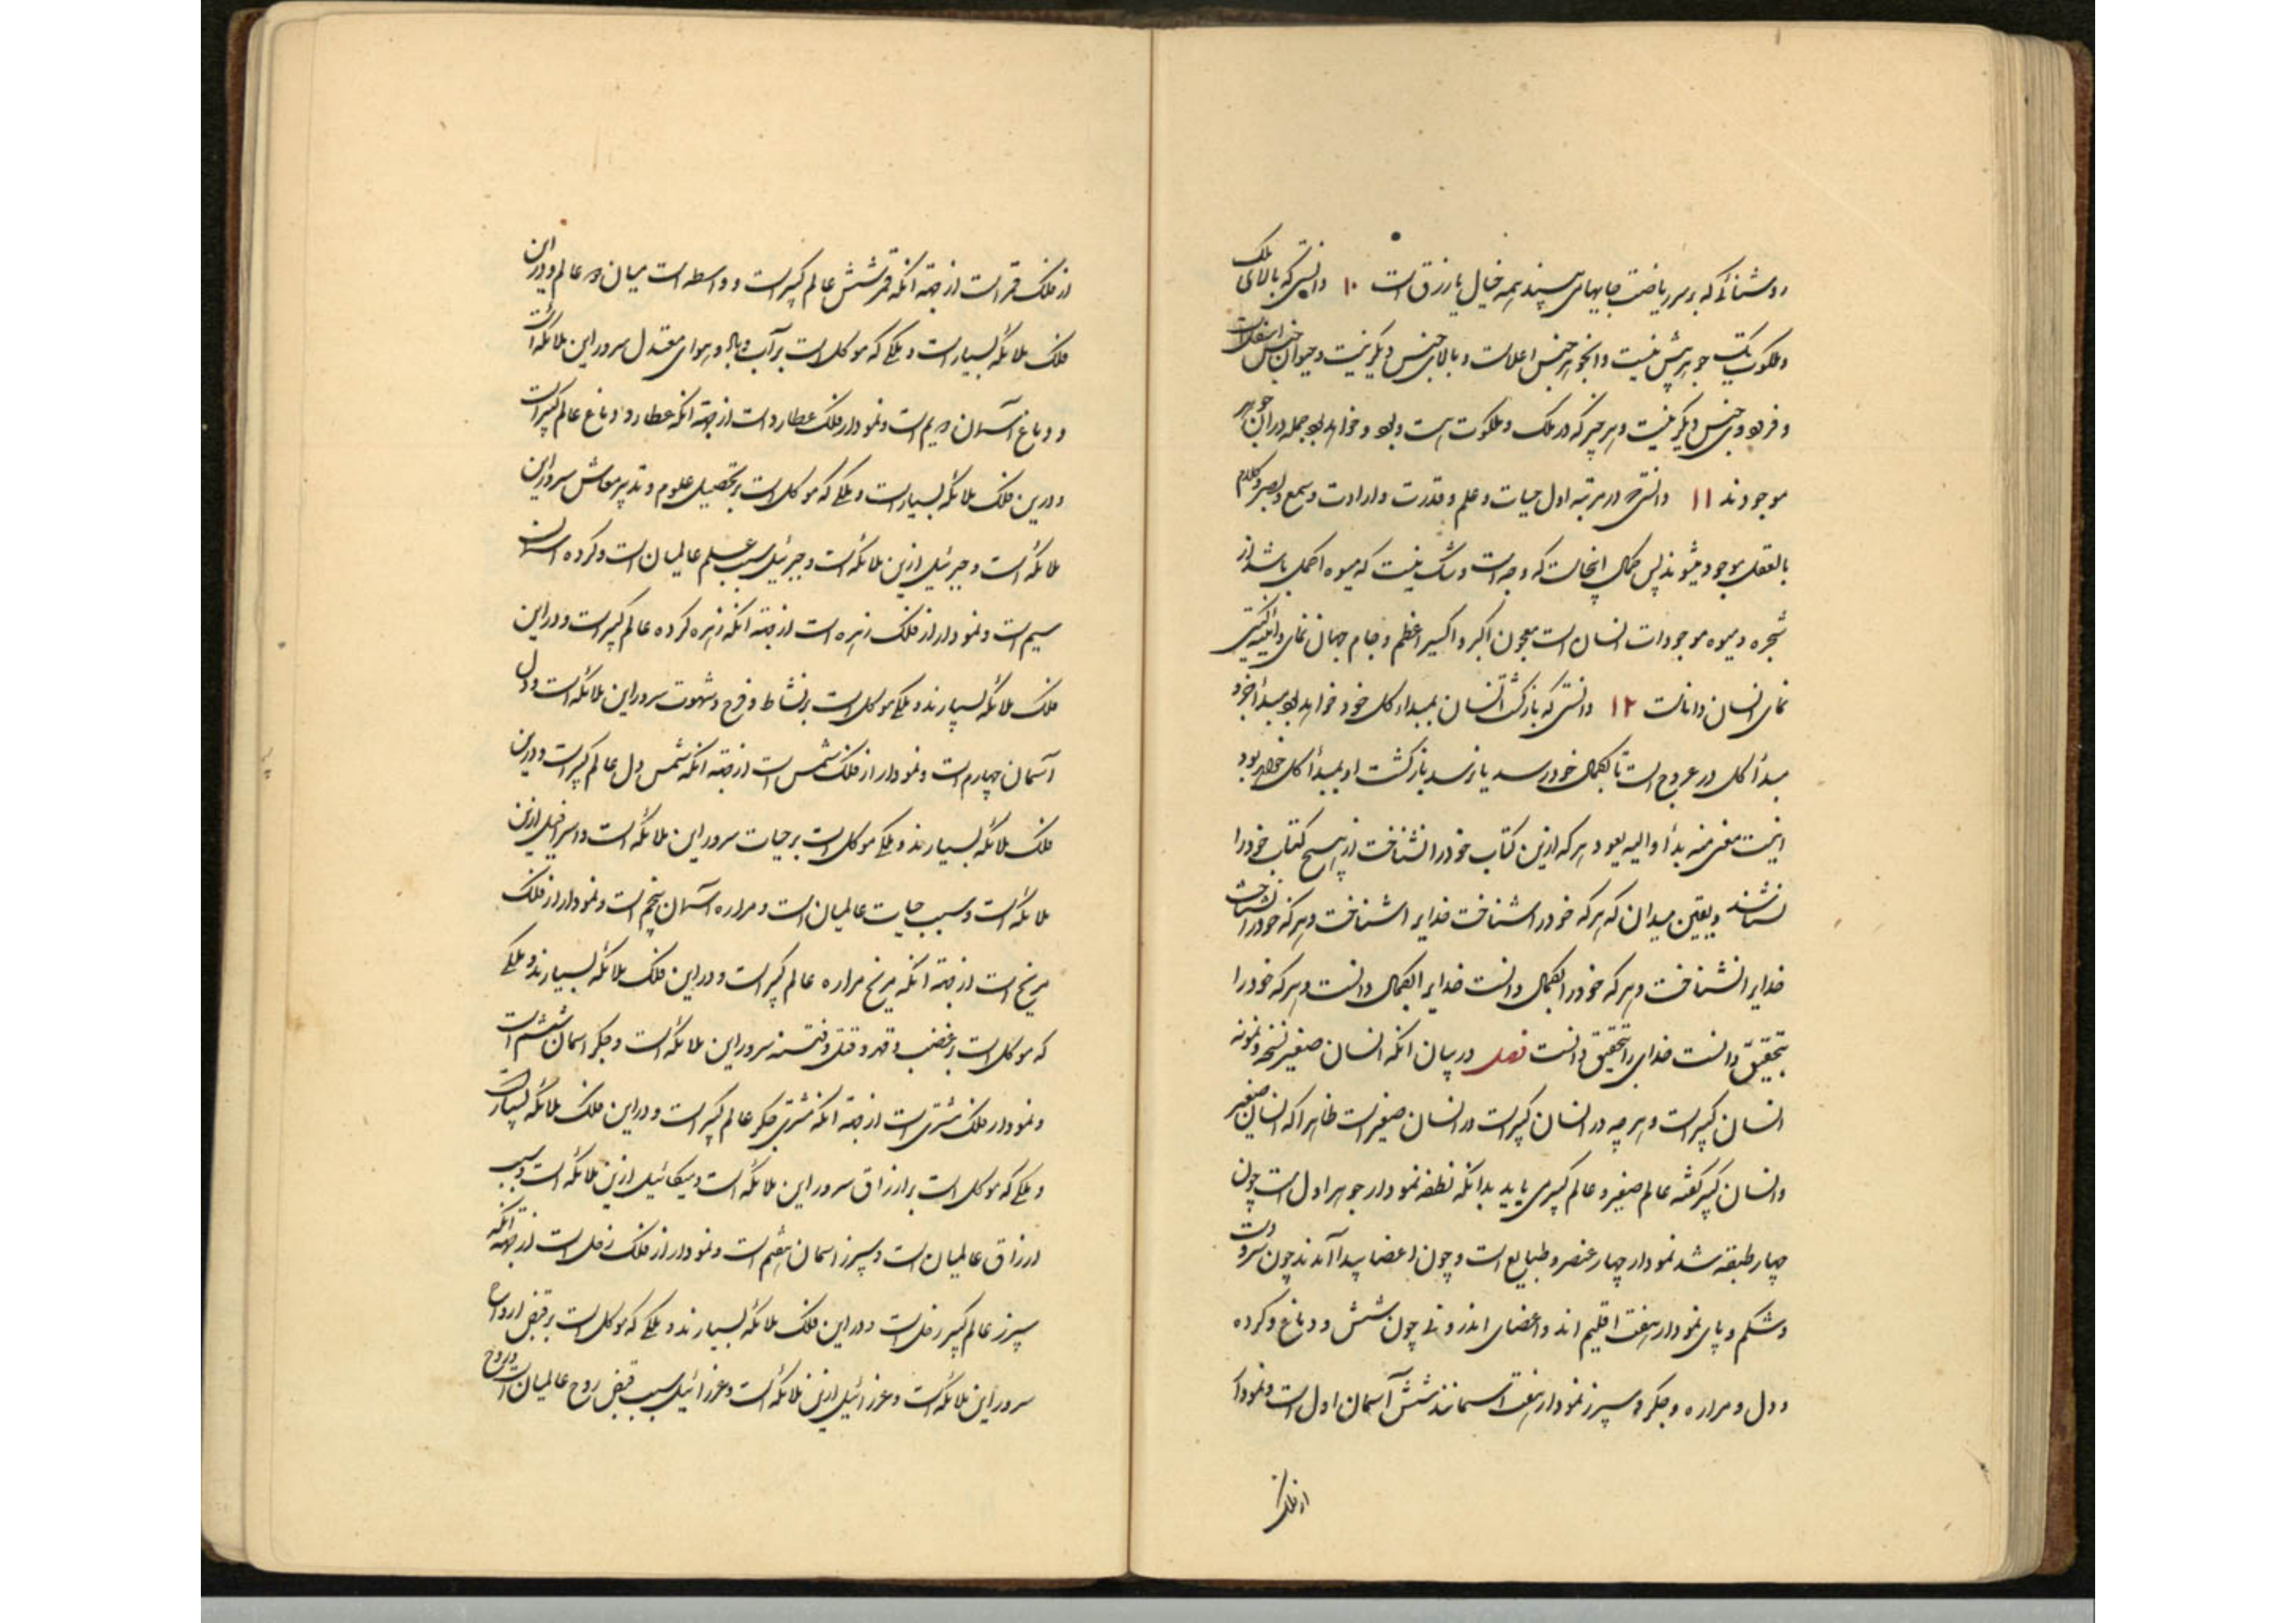 روشنائی که بر سر ریاضت جایهای سپند همه خیال یا رزق است ۱۰ دانستی که بالای ملک
و ملکوت یک جوهر بیش نیست و آنجوهر جنس اعلاست و بالای جنس دیگر نیست و حیوان جنس اسفل است
و فرود وی جنس دیگر نیست و هر چیز که در ملک و ملکوت هست و بود و خواهد بود جمله در آن جوهر
موجودند ۱۱ دانستی در مرتبه اول حیات و علم و قدرت و ارادت و سمع و بصر و کلام
بالفعل موجود میشوند پس کمال اینجاست که وجه است و شک نیست که میوه اکمل باشد از
شجره و میوه موجودات انسان است معجون اکبر و اکسیر اعظم و جام جهان نمای و آئینه گیتی
نمای انسان داناست ۱۲ دانستی که بازگشت انسان بمبداء کل خود خواهد بود مبدأ جزو
مبدأ کل در عروج است تا بکمال خود رسد یا نرسد بازگشت او بمبدأ کل خواهد بود
اینست معنی منه بدأ و الیه یعود هر که ازین کتاب خود را نشناخت از هیچ کتاب خود را
نشناسد و یقین میدان که هر که خود را شناخت خدایرا شناخت و هر که خود را نشناخت
خدایرا نشناخت و هر که خود را بکمال دانست خدایرا بکمال دانست و هر که خود را
بتحقیق دانست خدای را بتحقیق دانست فصل در بیان آنکه انسان صغیر نسخه و نمونه
انسان کبیر است و هر چه در انسان کبیر است در انسان صغیر است ظاهرا که انسان صغیر
و انسان کبیر گفته عالم صغیر و عالم کبیر می باید بدانکه نطفه نمودار جوهر اول است چون
چهار طبقه شد نمودار چهار عنصر و طبایع است و چون اعضا پیدا آمدند چون سر و دست
و شکم و پای نمودار هفت اقلیم اند و اعضای اندرونی چون شش و دماغ و کرده
و دل و مراره و جگر و سپرز نمودار هفت آسمانند شش آسمان اول است و نمودار
از فلک
از فلک قمر است از جهة آنکه قمر شش عالم کبیر است و واسطه است میان دو عالم و در این
فلک ملائکه بسیار است و ملکی که موکل است بر آب و هوای معتدل سرور این ملائکه است
و دماغ آسمان دویم است و نمودار فلک عطارد است از جهة آنکه عطارد دماغ عالم کبیر است
و درین فلک ملائکه بسیار است و ملکی که موکل است بر تحصیل علوم و تدبیر معاش سرور این
ملائکه است و جبرئیل ازین ملائکه است و جبرئیل سبب علم عالمیان است و کرده آسمان
سیم است و نمودار از فلک زهره است از جهة آنکه زهره کرده عالم کبیر است و در این
فلک ملائکه بسیارند و ملکی موکل است بر نشاط و فرح و شهوت سرور این ملائکه است و دل
آسمان چهارم است و نمودار از فلک شمس است از جهة آنکه شمس دل عالم کبیر است و درین
فلک ملائکه بسیارند و ملکی موکل است بر حیات سرور این ملائکه است و اسرافیل ازین
ملائکه است و سبب حیات عالمیان است و مراره آسمان پنجم است و نمودار از فلک
مریخ است از جهة آنکه مریخ مراره عالم کبیر است و در این فلک ملائکه بسیارند و ملکی
که موکل است بر غضب و قهر و قتل و فتنه سرور این ملائکه است و جگر آسمان ششم است
و نمودار فلک مشتری است از جهة آنکه مشتری جگر عالم کبیر است و در این فلک ملائکه بسیار است
و ملکی که موکل است بر ارزاق سرور این ملائکه است و میکائیل ازین ملائکه است و سبب
ارزاق عالمیان است و سپرز آسمان هفتم است و نمودار از فلک زحل است از جهة آنکه
سپرز عالم کبیر زحل است و در این فلک ملائکه بسیارند و ملکی که موکل است بر قبض ارواح
سرور این ملائکه است و عزرائیل ازین ملائکه است و عزرائیل سبب قبض روح عالمیان است و روح